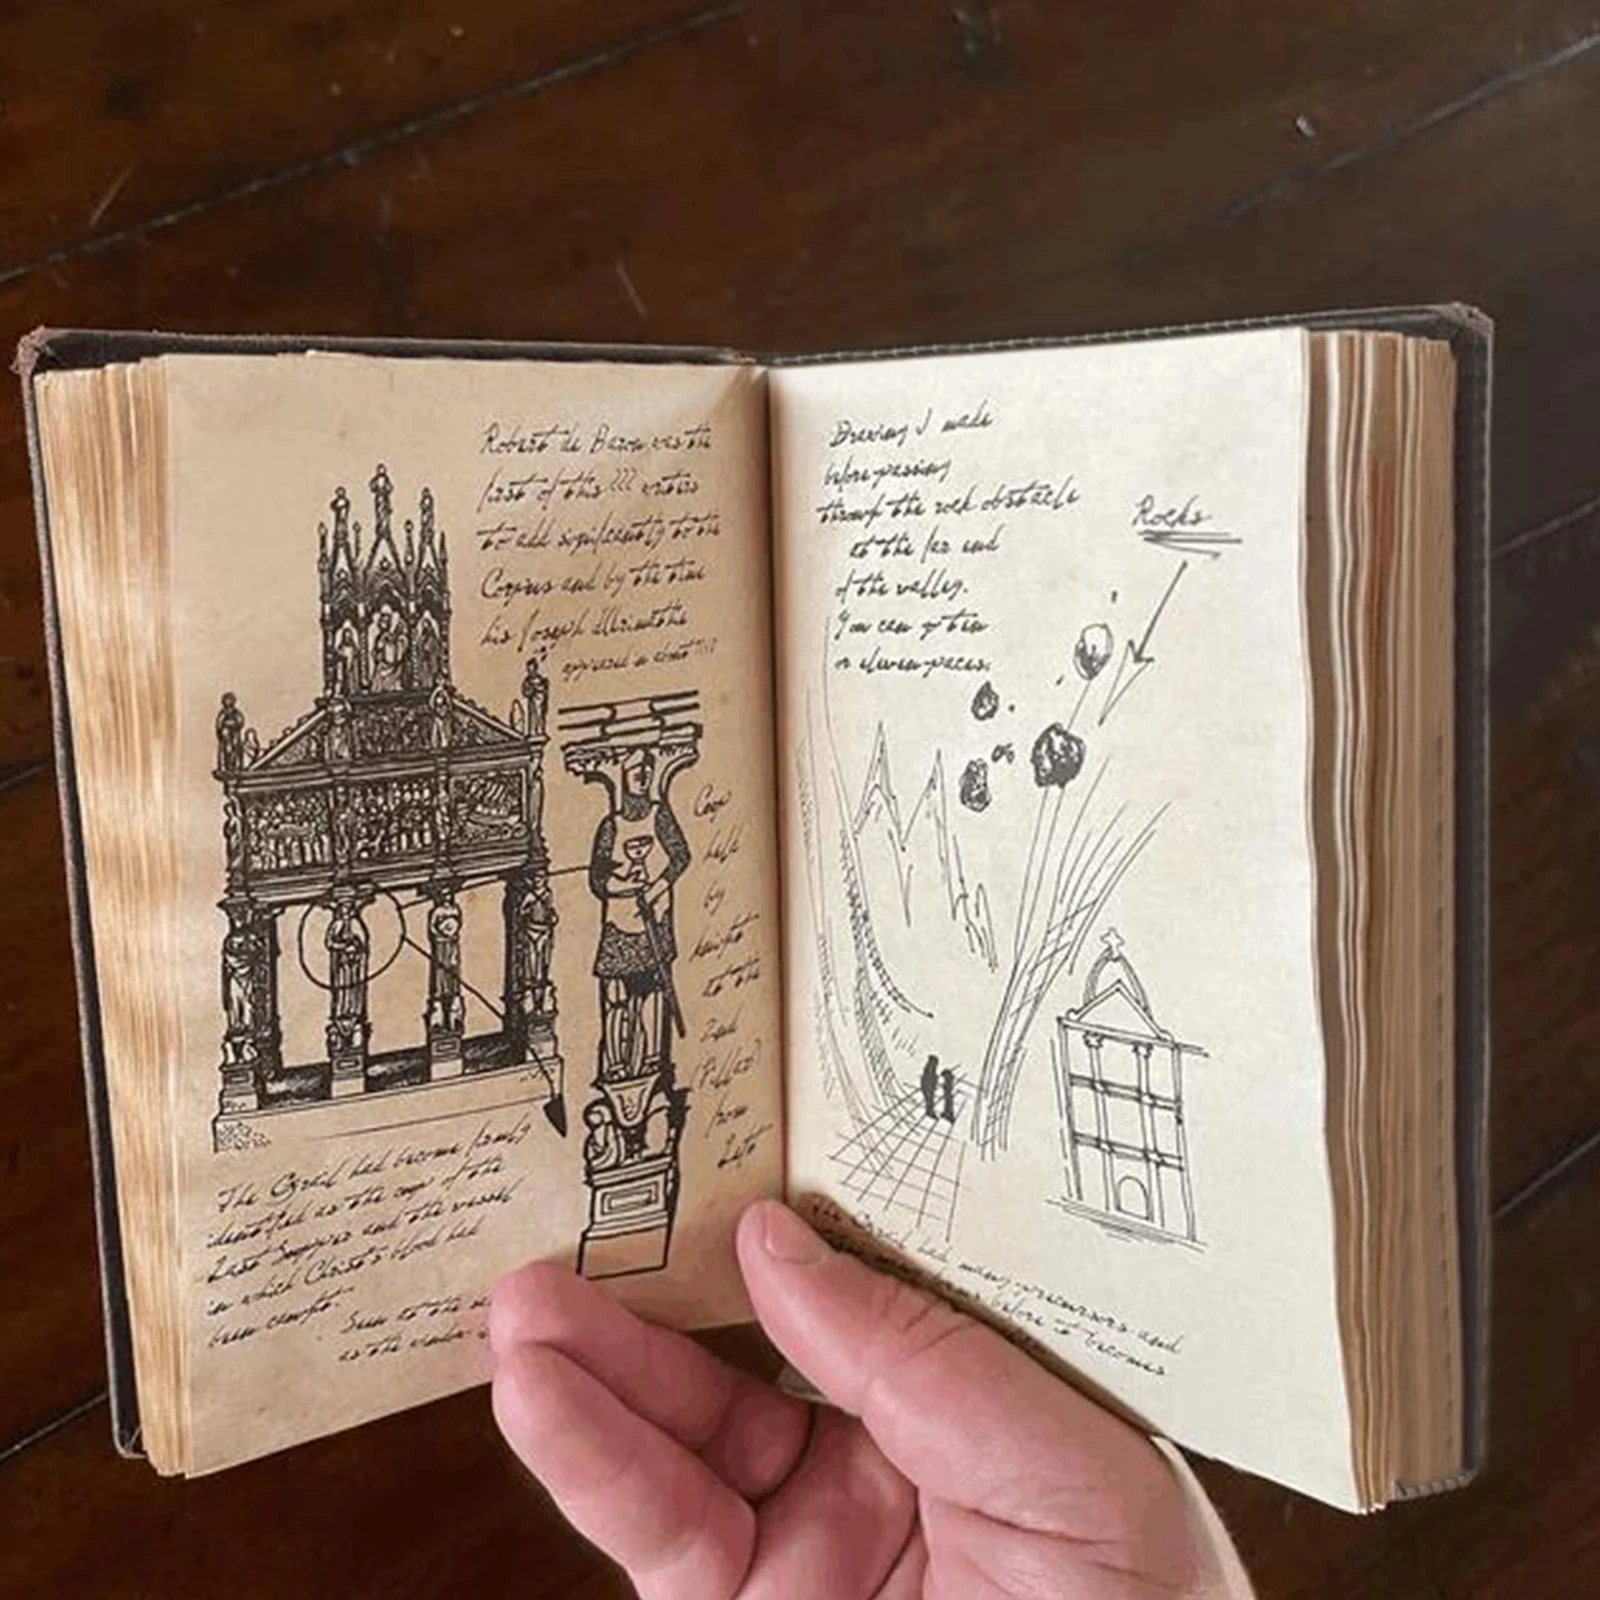 Robert de Boron was the
first of this ??? writers
to add significantly to the
Corpus and by the time
his Joseph
appeared in about
Cup
held
by
knight
to the
2nd
(Pillar)
from
Left
The Grail had become firmly
identified as the cup of the
Last Supper and the vessel
in which Christ's blood had
been caught.
as the
Drawing I made
before passing
through the rock obstacle
at the far end
of the valley.
You can go ten
or eleven paces.
Rocks
The Grail had many precursors and
before it becomes